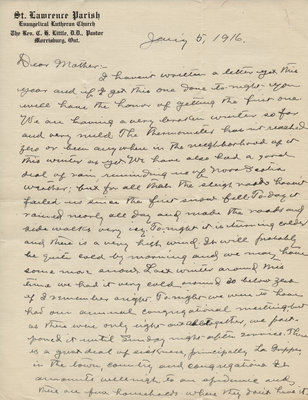 St. Lawrence Parish
Evangelical Lutheran Church
The Rev. C. H. Little, D.D., Pastor
Morrisburg, Ont.
Jan'y 5, 1916.
Dear Mother:-
I haven't written a letter yet this
year and if I get this one done to-night you
will have the honor of getting the first one.
We are having a very broken winter so far
and very mild. The thermometer has not reached
zero or been anywhere in the neighborhood of it
this winter as yet. We have also had a good
deal of rain reminding us of Nova Scotia
weather; but for all that the sleigh roads haven't
failed us since the first snow fell. To-day it
rained nearly all day and made the roads and
side walks very icy. To-night it is turning colder
and there is a very high wind. It will probably
be quite cold by morning and we may have
some more snow. Last winter around this
time we had it very cold, around 30 below zero
if I remember aright. To-night we were to have
had our annual congregational meeting, but
as there were only eight out altogether, we post-
poned it until Sunday night after service. There
is a great deal of sickness, principally La Grippe
in the town, country and congregation. It
amounts well nigh to an epidemic and
there are few households where they don't have it